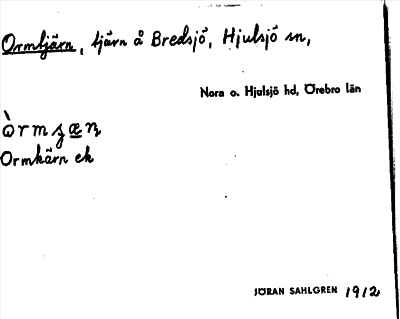 Ormtjärn, tjärn å Bredsjö, Hjulsjö sn,
Nora o. Hjulsjö hd, Örebro län
Ormkärn ek
JÖRAN SAHLGREN 1912